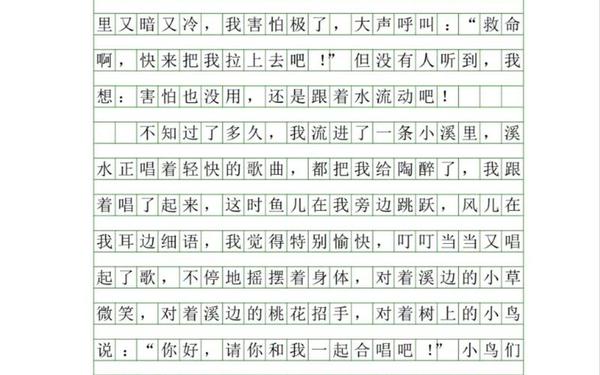 里又暗又冷，我害怕极了，大声呼叫：“救命
啊，快来把我拉上去吧！”但没有人听到，我
想：害怕也没用，还是跟着水流动吧！
不知过了多久，我流进了一条小溪里，溪
水正唱着轻快的歌曲，都把我给陶醉了，我跟
着唱了起来，这时鱼儿在我旁边跳跃，风儿在
我耳边细语，我觉得特别愉快，叮叮当当又唱
起了歌，不停地摇摆着身体，对着溪边的小草
微笑，对着溪边的桃花招手，对着树上的小鸟
说：“你好，请你和我一起合唱吧！”小鸟们